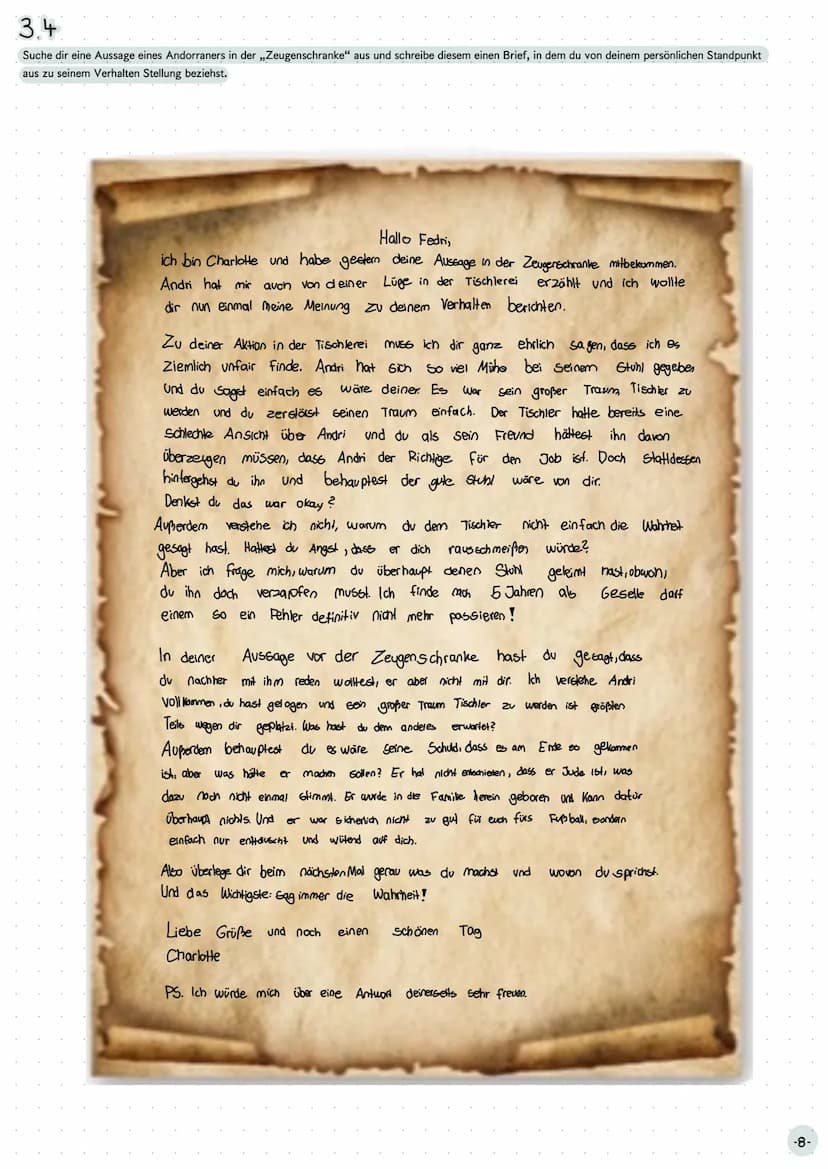 3.4
Suche dir eine Aussage eines Andorraners in der „Zeugenschranke“ aus und schreibe diesem einen Brief, in dem du von deinem persönlichen Standpunkt
aus zu seinem Verhalten Stellung beziehst.
Hallo Fedri,
ich bin Charlotte und habe gestern deine Aussage in der Zeugenschranke mitbekommen.
Andri hat mir auch von deiner Lüge in der Tischlerei erzählt und ich wollte
dir nun einmal meine Meinung zu deinem Verhalten berichten.
Zu deiner Aktion in der Tischlerei muss ich dir ganz ehrlich sagen, dass ich es
ziemlich unfair finde. Andri hat sich so viel Mühe bei seinem Stuhl gegeben
und du sagst einfach es wäre deiner. Es war sein großer Traum, Tischler zu
werden und du zerstörst seinen Traum einfach. Der Tischler hatte bereits eine
schlechte Ansicht über Andri und du als sein Freund hättest ihn davon
überzeugen müssen, dass Andri der Richtige für den Job ist. Doch stattdessen
hintergehst du ihn und behauptest der gute Stuhl wäre von dir.
Denkst du das war okay?
Außerdem verstehe ich nicht, warum du dem Tischler nicht einfach die Wahrheit
gesagt hast. Hattest du Angst, dass er dich rausschmeißen würde?
Aber ich frage mich, warum du überhaupt deinen Stuhl geleimt hast, obwohl
du ihn doch verzapfen musst. Ich finde nach 5 Jahren als Geselle darf
einem so ein Fehler definitiv nicht mehr passieren!
In deiner Aussage vor der Zeugenschranke hast du gesagt, dass
du nachher mit ihm reden wolltest, er aber nicht mit dir. Ich verstehe Andri
vollkommen, du hast gelogen und sein großer Traum Tischler zu werden ist größten
Teils wegen dir geplatzt. Was hast du denn anderes erwartet?
Außerdem behauptest du es wäre seine Schuld, dass es am Ende so gekommen
ist, aber was hätte er machen sollen? Er hat nicht entschieden, dass er Jude ist, was
dazu noch nicht einmal stimmt. Er wurde in die Familie herein geboren und kann dafür
überhaupt nichts. Und er war sicherlich nicht zu gut für euch fürs Fußball, sondern
einfach nur enttäuscht und wütend auf dich.
Also überlege dir beim nächsten Mal genau was du machst und wovon du sprichst.
Und das Wichtigste: Sag immer die Wahrheit!
Liebe Grüße und noch einen schönen Tag
Charlotte
PS. Ich würde mich über eine Antwort deinerseits sehr freuen.
-8-